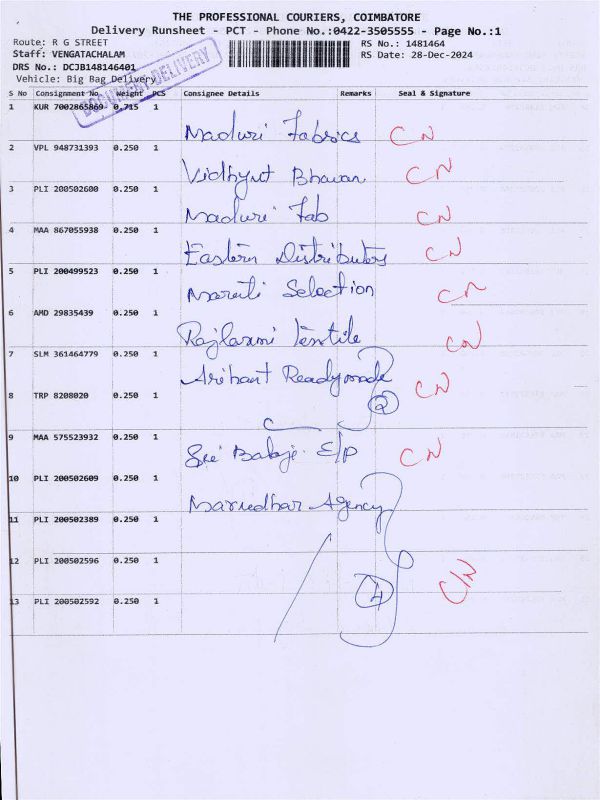 THE PROFESSIONAL COURIERS, COIMBATORE
Delivery Runsheet - PCT - Phone No.:0422-3505555 - Page No.:1
Route: R G STREET
RS No.: 1481464
Staff: VENGATACHALAM
RS Date: 28-Dec-2024
DRS No.: DCJB148146401
Vehicle: Big Bag Delivery
DOCUMENT DELIVERY
S No Consignment No. Weight PCS Consignee Details Remarks Seal & Signature
1 KUR 7002865869 0.715 1
Maduri Fabrics CN
2 VPL 948731393 0.250 1
Vidhyut Bhavan CN
3 PLI 200502600 0.250 1
Maduri Fab CN
4 MAA 867055938 0.250 1
Eastern Distributors CN
5 PLI 200499523 0.250 1
Maruti Selection CN
6 AMD 29835439 0.250 1
Rajlaxmi Textile CN
7 SLM 361464779 0.250 1
Arihant Readymade CN
8 TRP 8208020 0.250 1
2
9 MAA 575523932 0.250 1
Sri Balaji E/P CN
10 PLI 200502609 0.250 1
Marudhar Agency
11 PLI 200502389 0.250 1
12 PLI 200502596 0.250 1
4 C/N
13 PLI 200502592 0.250 1